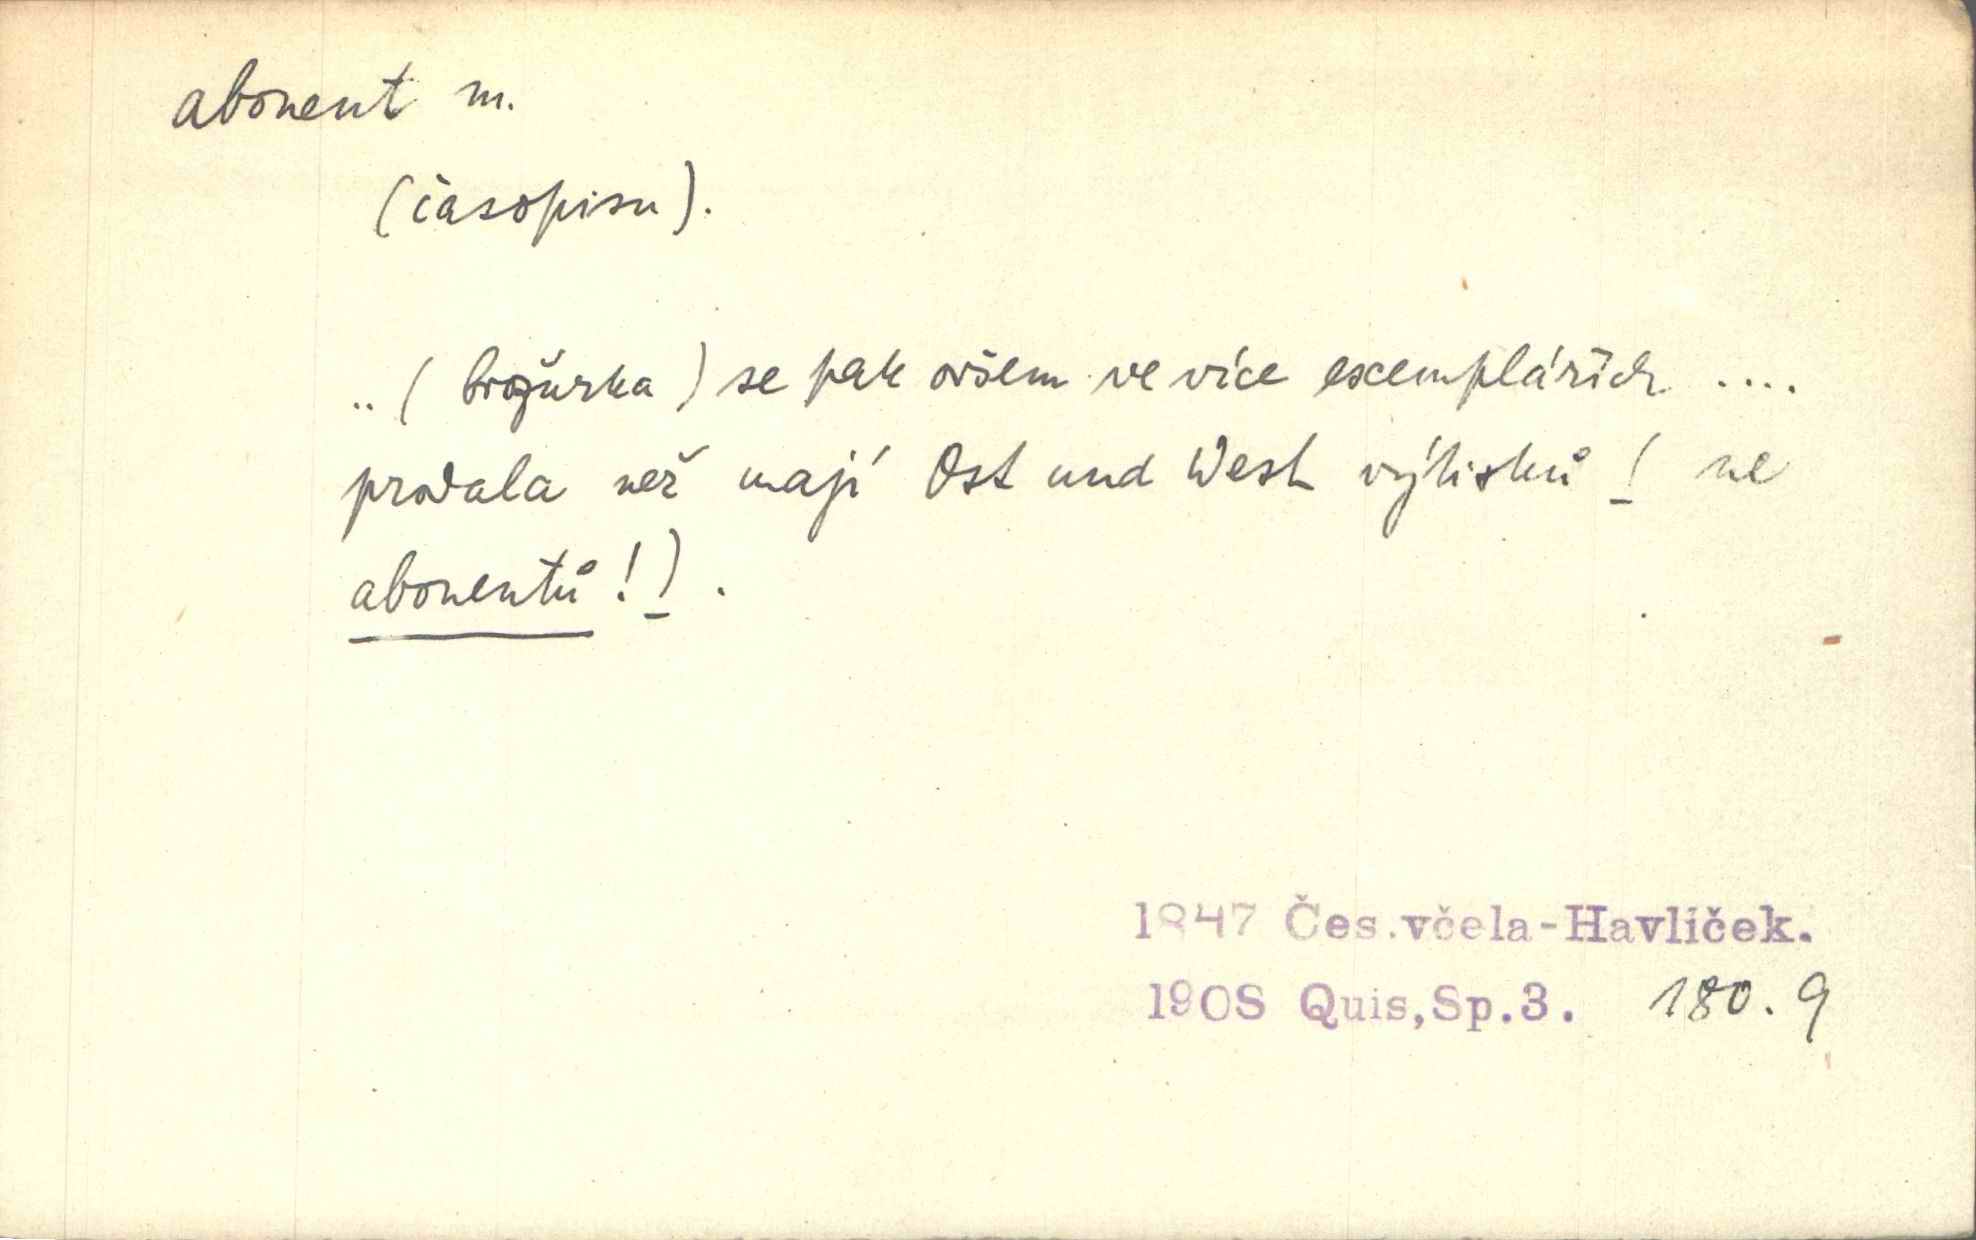 abonent m.
(časopisu).
.. ( brožurka ) se pak ovšem ve více exemplářích ....
prodala než mají Ost und West výtisků ( ne
abonentů ! ) .
1847 Čes.včela-Havlíček.
190S Quis,Sp.3. 180. 9